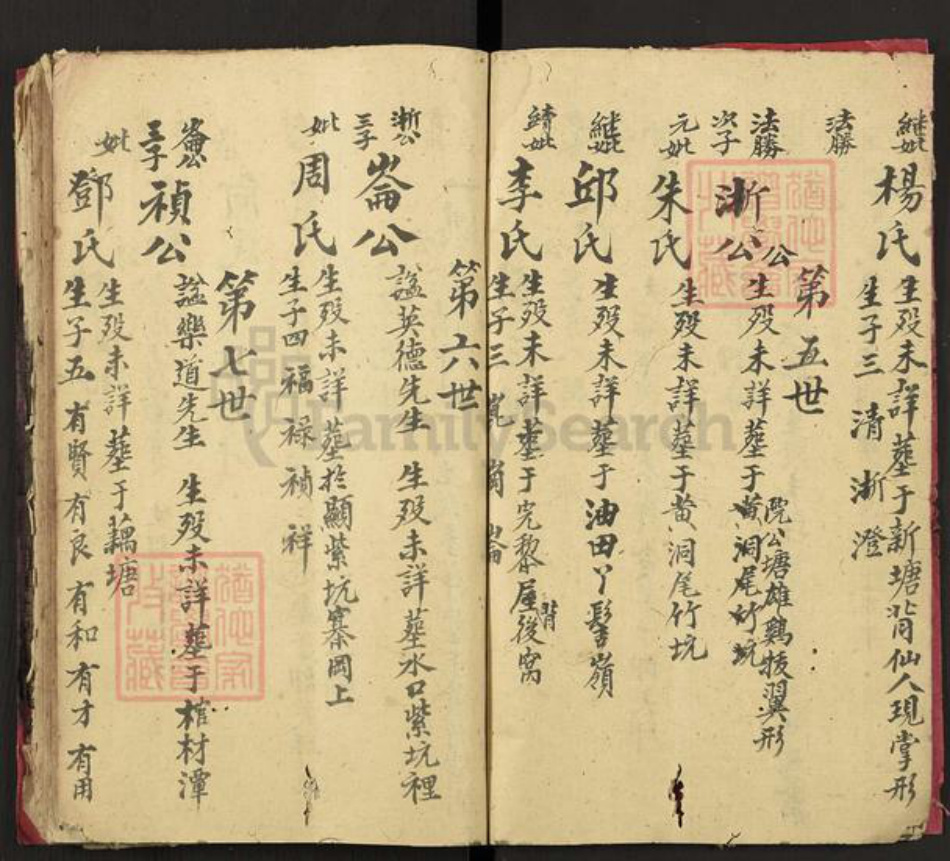 繼妣
楊氏
生歿未詳墓于新塘背仙人現掌形
生子三 清 淅 澄
第五世
法勝
法勝
次子
淅公
公
生歿未詳墓于黄洞尾竹坑
院公塘雄鷄拔翼形
元妣
朱氏
生歿未詳墓于黄洞尾竹坑
繼妣
邱氏
生歿未詳墓于油田丫髻嶺
李氏
生歿未詳墓于完黎屋背後窩
生子三
崙
第六世
淅公
三子
崙公
諡英德先生 生歿未詳墓水口紫坑裡
妣
周氏
生歿未詳墓於顯紫坑寨岡上
生子四 福 禄 禎 祥
第七世
崙公
三子
禎公
諡樂道先生 生歿未詳墓于棺材潭
妣
鄧氏
生歿未詳墓于藕塘
生子五 有賢 有良 有和 有才 有用
FamilySearch